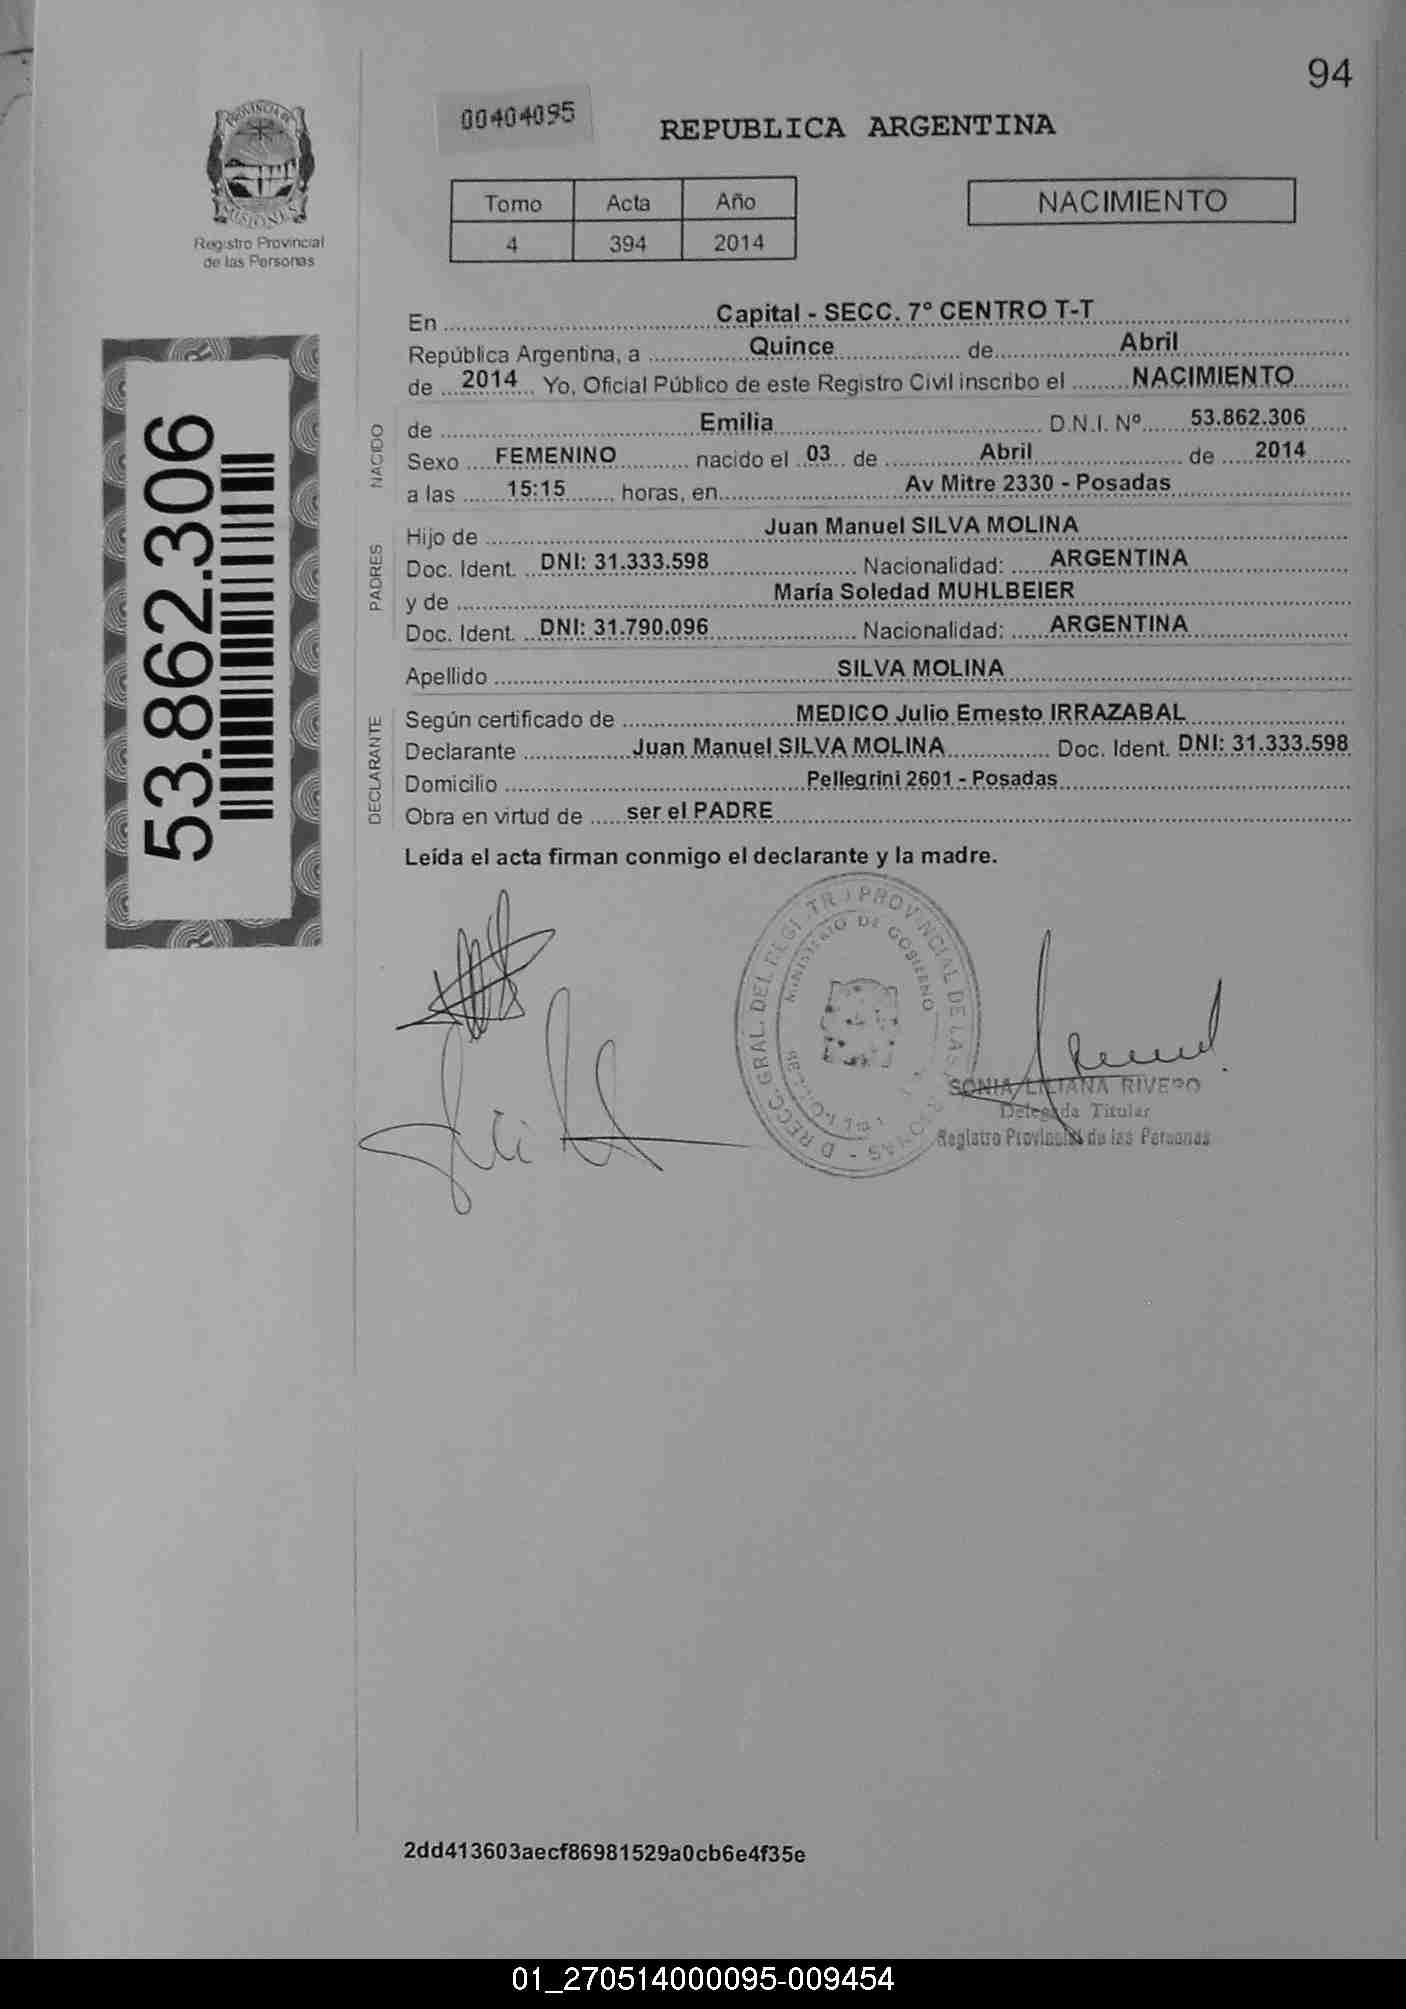 94
PROVINCIA DE
MISIONES
Registro Provincial
de las Personas
00404095
REPUBLICA ARGENTINA
Tomo Acta Año
4 394 2014
NACIMIENTO
53.862.306
En Capital - SECC. 7º CENTRO T-T
República Argentina, a Quince de Abril
de 2014 Yo, Oficial Público de este Registro Civil inscribo el NACIMIENTO
NACIDO
de Emilia D.N.I. Nº 53.862.306
Sexo FEMENINO nacido el 03 de Abril de 2014
a las 15:15 horas, en Av Mitre 2330 - Posadas
PADRES
Hijo de Juan Manuel SILVA MOLINA
Doc. Ident. DNI: 31.333.598 Nacionalidad: ARGENTINA
y de María Soledad MUHLBEIER
Doc. Ident. DNI: 31.790.096 Nacionalidad: ARGENTINA
Apellido SILVA MOLINA
DECLARANTE
Según certificado de MEDICO Julio Ernesto IRRAZABAL
Declarante Juan Manuel SILVA MOLINA Doc. Ident. DNI: 31.333.598
Domicilio Pellegrini 2601 - Posadas
Obra en virtud de ser el PADRE
Leída el acta firman conmigo el declarante y la madre.
MINISTERIO DE GOBIERNO
SONIA LILIANA RIVERO
Delegada Titular
Registro Provincial de las Personas
2dd413603aecf86981529a0cb6e4f35e
01_270514000095-009454